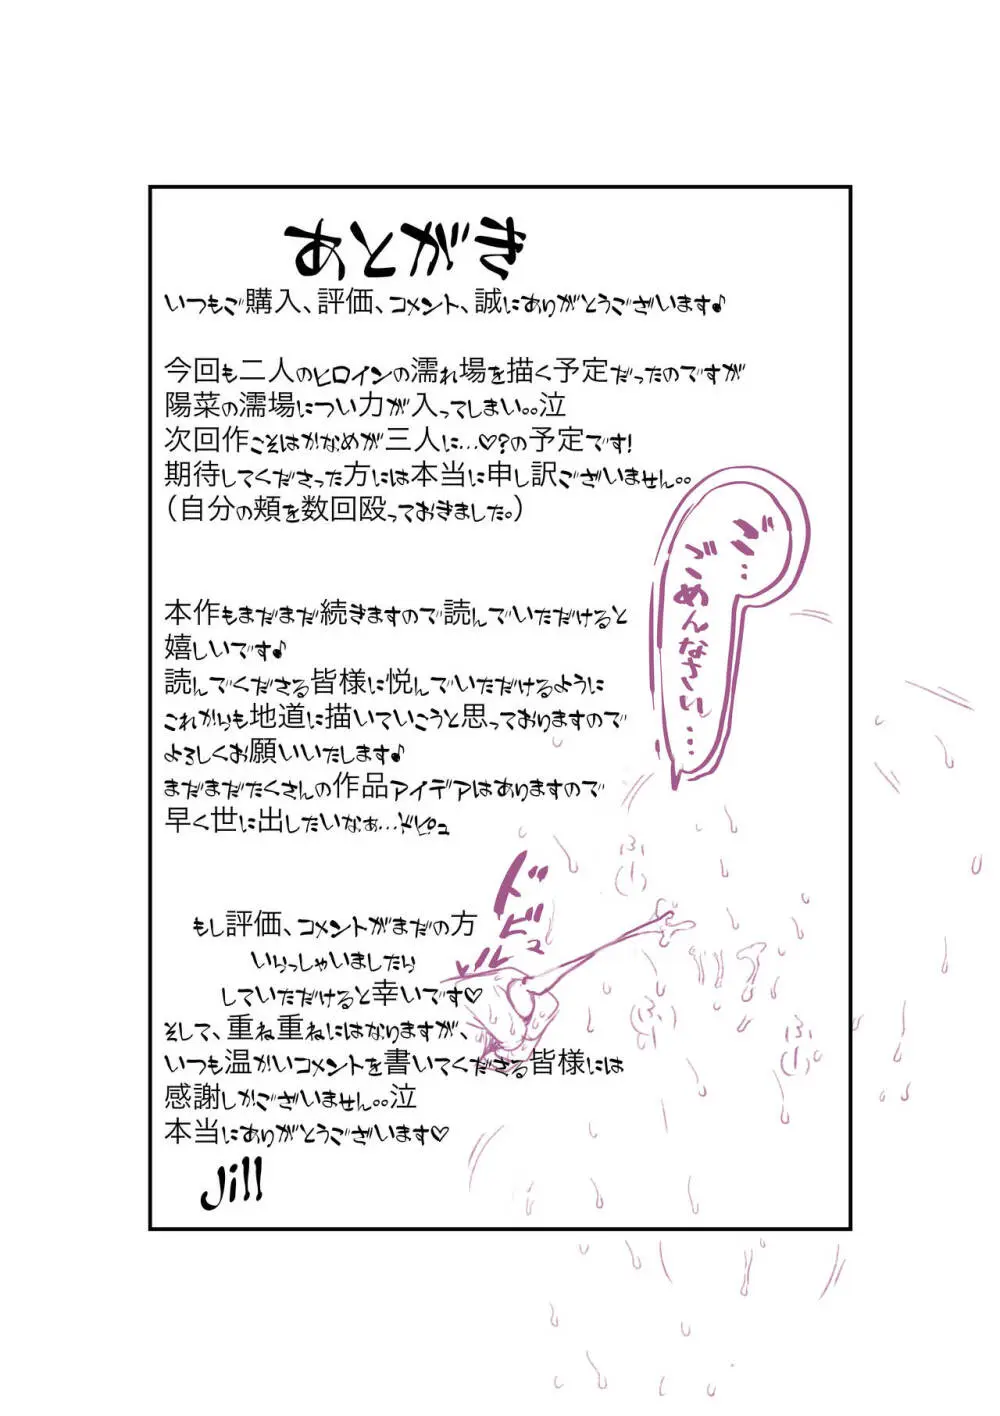 あとがき
いつもご購入、評価、コメント、誠にありがとうございます♪
今回も二人のヒロインの濡れ場を描く予定だったのですが
陽菜の濡場につい力が入ってしまい｡｡泣
次回作こそはかなめが三人に…♡?の予定です!
期待してくださった方には本当に申し訳ございません｡｡
(自分の頬を数回殴っておきました｡)
本作もまだまだ続きますので読んでいただけると
嬉しいです♪
読んでくださる皆様に悦んでいただけるように
これからも地道に描いていこうと思っておりますので
よろしくお願いいたします♪
まだまだたくさんの作品アイデアはありますので
早く世に出したいなぁ…ドピュ
もし評価、コメントがまだの方
いらっしゃいましたら
していただけると幸いです♡
そして、重ね重ねにはなりますが、
いつも温かいコメントを書いてくださる皆様には
感謝しかございません｡｡泣
本当にありがとうございます♡
Jill
ご…
ごめんなさい…
ドピュ
ふぅー
ふぅー
ふぅー